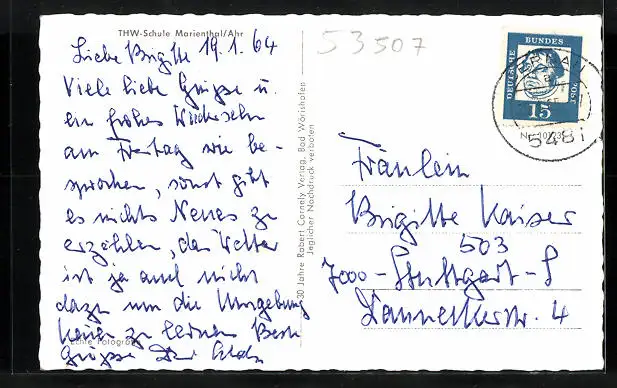 THW-Schule Marienthal/Ahr
Liebe Brigitte 19.1.64
Viele liebe Grüsse u.
ein frohes Wiedersehn
am Freitag wie be-
sprochen, sonst gibt
es nichts Neues zu
erzählen, das Wetter
ist ja auch nicht
dazu um die Umgebung
kennen zu lernen Beste
Grüsse Dein
Echte Fotografie
30 Jahre Robert Cornely Verlag, Bad Wörishofen
Jeglicher Nachdruck verboten
53507
DEUTSCHE BUNDESPOST
15
5481
Fräulein
Brigitte Kaiser
503
7000-Stuttgart-S
Dannekerstr. 4